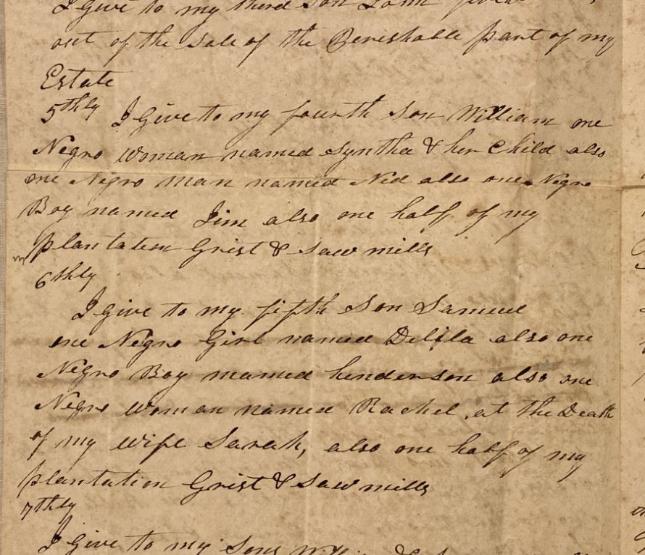 I give to my third Son
out of the sale of the Pereshable part of my
Estate
5thly I Give to my fourth Son William one
Negro woman named Syntha & her Child also
one Negro man named Ned also one Negro
Boy named Jim also one half of my
plantation Grist & Saw mills
6thly
I give to my fifth Son Samuel
one Negro Girl named Delila also one
Negro Boy mamed henderson also one
Negro woman named Rachel, at the Death
of my wife Sarah, also one half of my
plantation Grist & Saw mills
7thly
I give to my Sons